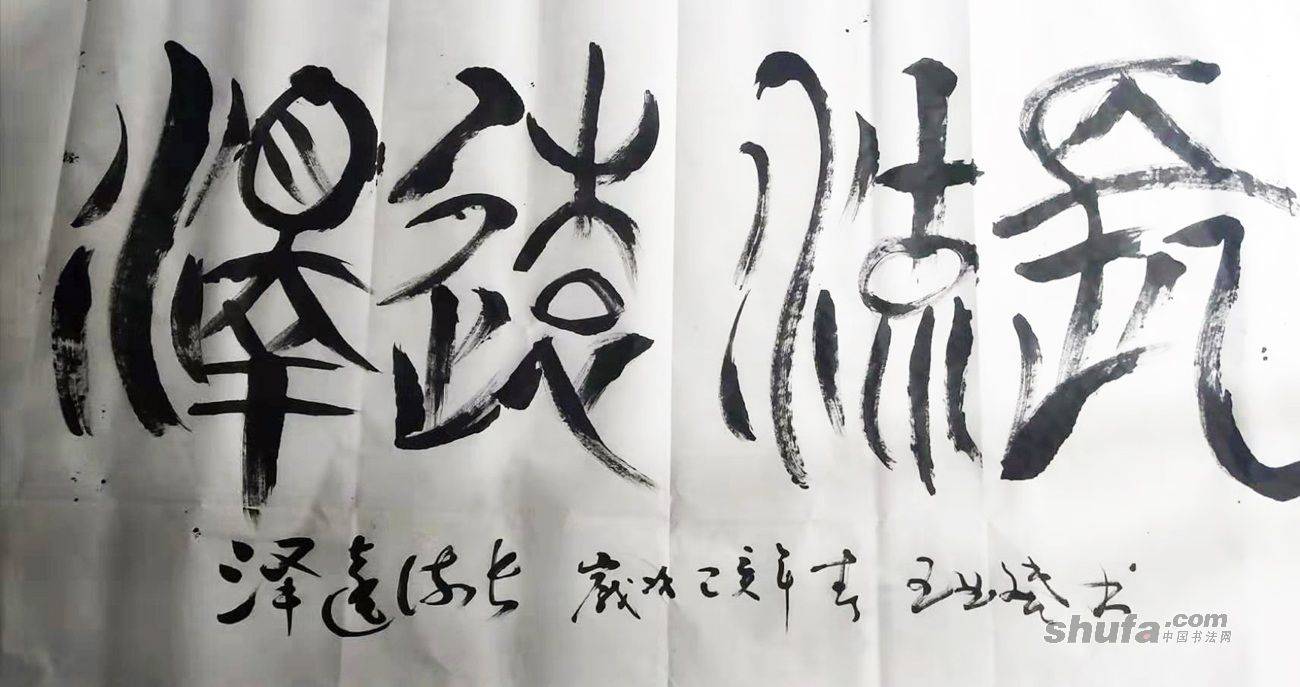 澤遠流長
泽遠流长 歲次己亥年春 王世 书
shufa.com
中国书法网